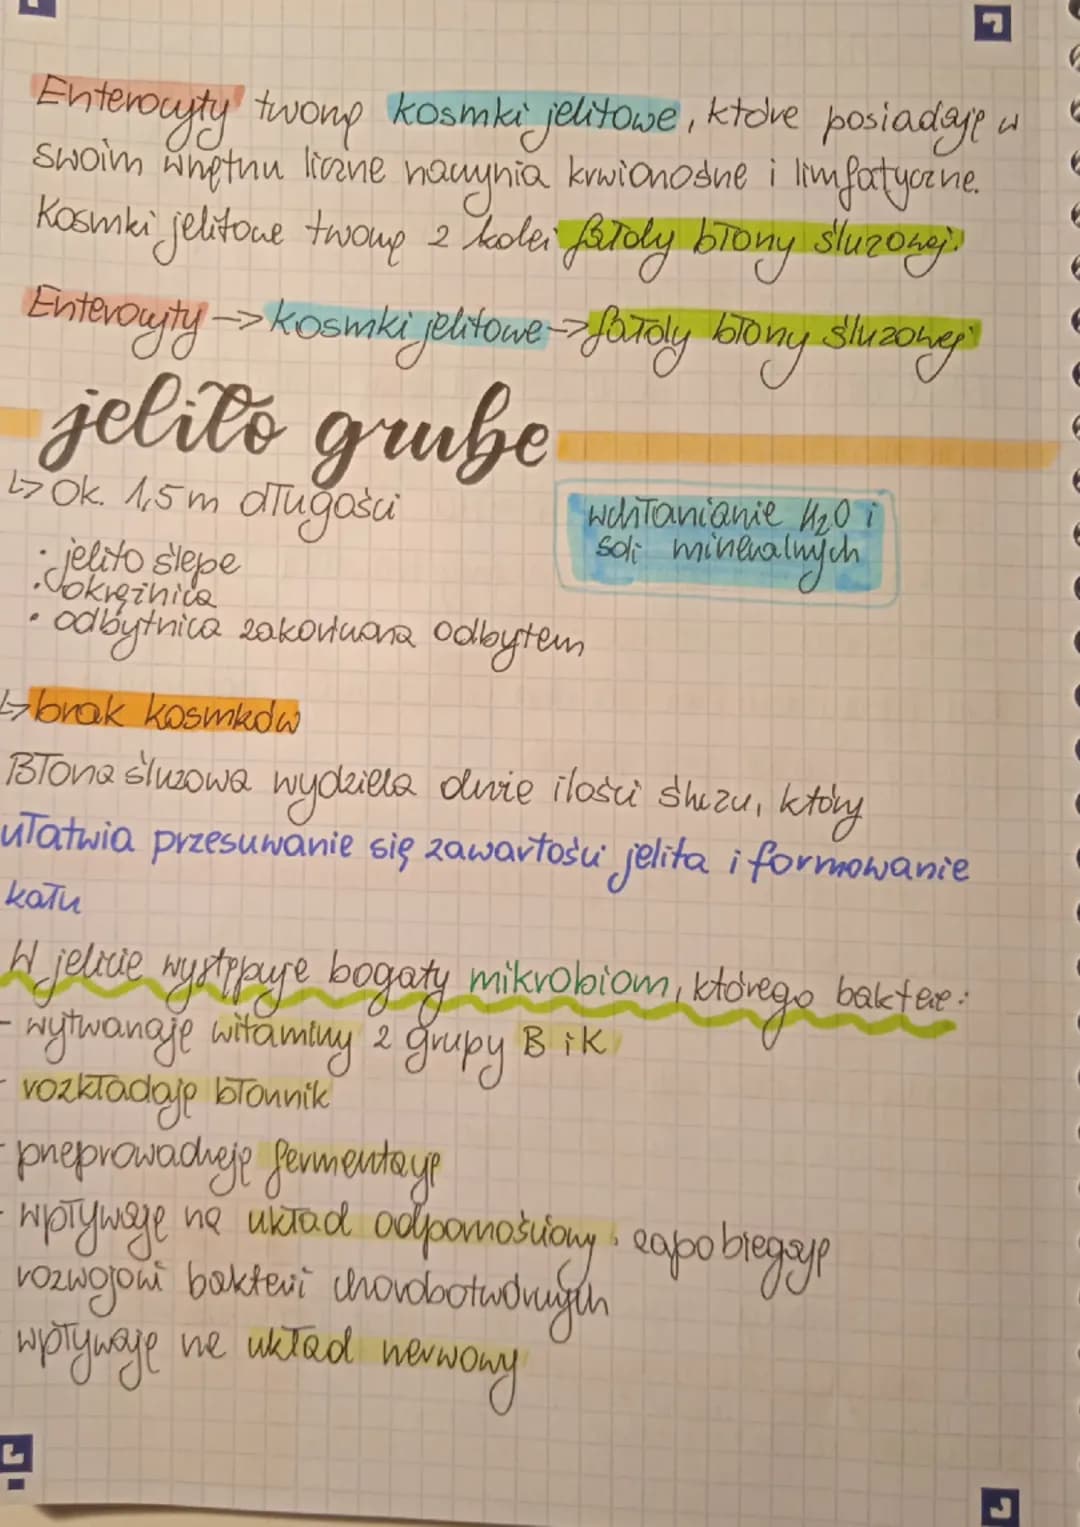 Enterocyty tworzą kosmki jelitowe, które posiadają w
swoim wnętrzu liczne naczynia krwionośne i limfatyczne.
Kosmki jelitowe tworzą z kolei fałdy błony śluzowej.
Enterocyty -> kosmki jelitowe -> fałdy błony śluzowej
jelito grube
↳ ok. 1,5 m długości
wchłanianie H₂O i
soli mineralnych
• jelito ślepe
• okrężnica
• odbytnica zakończona odbytem
↳ brak kosmków
Błona śluzowa wydziela duże ilości śluzu, który
ułatwia przesuwanie się zawartości jelita i formowanie
kału
W jelicie występuje bogaty mikrobiom, którego bakterie:
- wytwarzają witaminy z grupy B i K
- rozkładają błonnik
- przeprowadzają fermentację
- wpływają na układ odpornościowy, zapobiegają
rozwojowi bakterii chorobotwórczych
wpływają na układ nerwowy